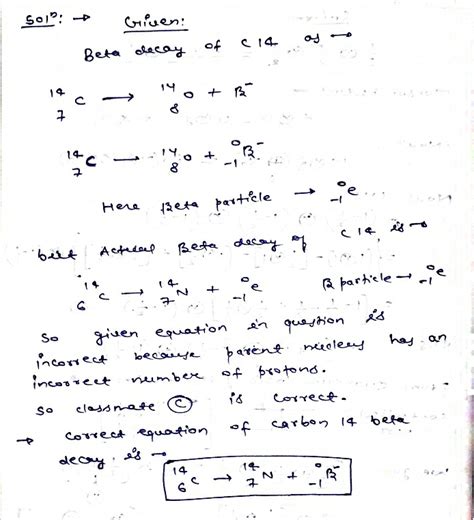 Solⁿ: → Given:
Beta decay of C 14 as →
¹⁴₇C → ¹⁴₈O + β⁻
¹⁴₇C → ¹⁴₈O + ⁰₋₁β⁻
Here Beta particle → ⁰₋₁e
but Actual Beta decay of C 14, is →
¹⁴₆C → ¹⁴₇N + ⁰₋₁e β particle → ⁰₋₁e
So given equation in question is
incorrect because parent nucleus has an
incorrect number of protons.
So classmate Ⓒ is correct.
→ correct equation of carbon 14 beta
decay is →
¹⁴₆C → ¹⁴₇N + ⁰₋₁β⁻